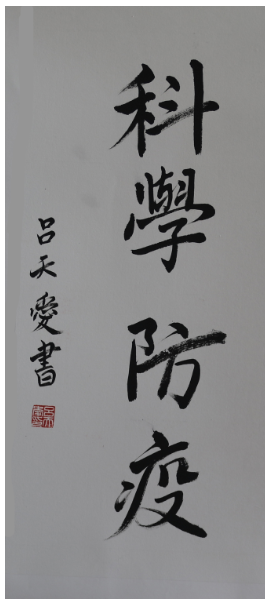 科學防疫
吕天愛書